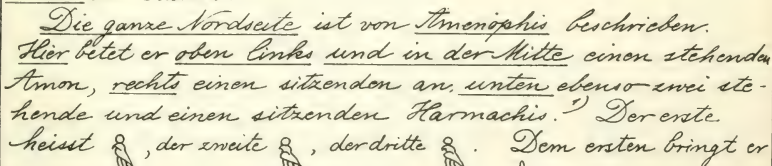 Die ganze Nordseite ist von Amenophis beschrieben.
Hier betet er oben links und in der Mitte einen stehenden
Amon, rechts einen sitzenden an, unten ebenso zwei ste-
hende und einen sitzenden Harmachis.¹) Der erste
heisst , der zweite , der dritte . Dem ersten bringt er